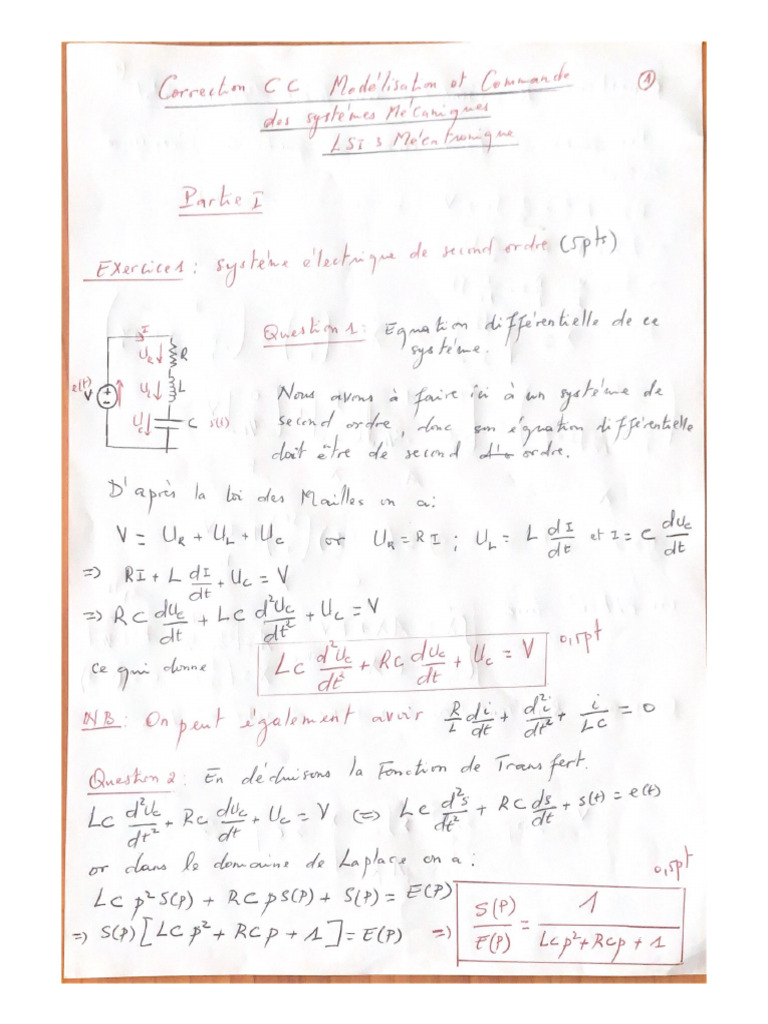 Correction CC Modélisation et Commande
①
des systèmes Mécaniques
LSI-3 Mécatronique
Partie I
Exercice 1 : système électrique de second ordre (5pts)
Question 1 : Equation différentielle de ce
système.
I
U_R R
e(t) V + - U_L L
U_C C s(t)
Nous avons à faire ici à un système de
second ordre, donc son équation différentielle
doit être de second d'o ordre.
D'après la loi des Mailles on a :
V = U_R + U_L + U_C (or U_R = RI ; U_L = L dI/dt et I = C dU_C/dt
=> RI + L dI/dt + U_C = V
=> RC dU_C/dt + LC d²U_C/dt² + U_C = V
ce qui donne LC d²U_C/dt² + RC dU_C/dt + U_C = V 0,5pt
NB : On peut également avoir R/L di/dt + d²i/dt² + i/LC = 0
Question 2 : En déduisons la Fonction de Transfert.
LC d²U_C/dt² + RC dU_C/dt + U_C = V <=> LC d²s/dt² + RC ds/dt + s(t) = e(t)
or dans le domaine de Laplace on a :
0,5pt
LC p² S(P) + RC p S(P) + S(P) = E(P)
=> S(P) [LC p² + RC p + 1] = E(P) => S(P)/E(P) = 1/(LCp² + RCp + 1)